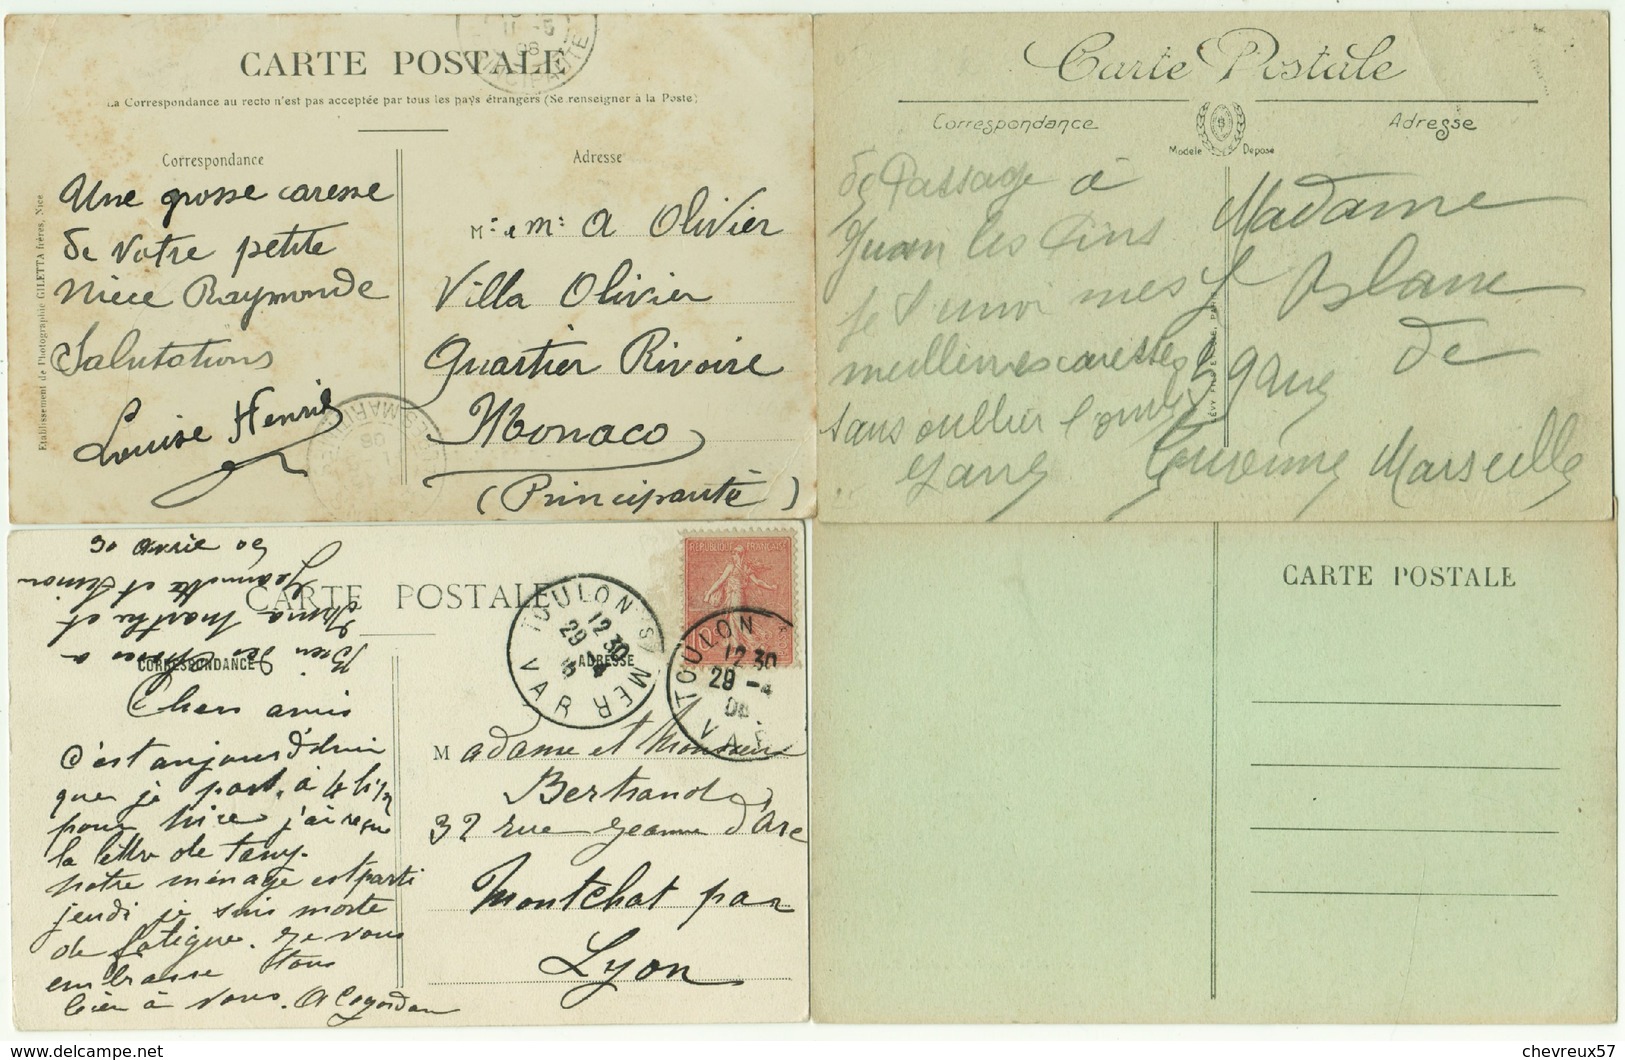 CARTE POSTALE
La Correspondance au recto n'est pas acceptée par tous les pays étrangers (Se renseigner à la Poste)
Correspondance
Adresse
Etablissement de Photographie GILETTA frères, Nice
Une grosse caresse
de votre petite
nièce Raymonde
Salutations
Louise Henrie
M: e m: A Olivier
Villa Olivier
Quartier Rivoire
Monaco
(Principauté)
Carte Postale
Correspondance
Adresse
Modèle Déposé
de Passage à
Juan les Pins
je t'envoi mes
meilleures caresses
sans oublier
Madame
Blanc
de
Marseille
30 avril 05
CARTE POSTALE
CORRESPONDANCE
ADRESSE
Bien des choses à
Anna Marthe et
Jeannette et Simon
Chers amis
C'est aujourd'hui
que je part à 4 h 1/2
pour Nice j'ai reçue
la lettre de Tany.
notre ménage est parti
jeudi je suis morte
de fatigue. je vous
embrasse tous
bien à vous.
REPUBLIQUE FRANÇAISE
TOULON S MER
12 30
29 4
VAR
TOULON
12 30
29 -4
Madame et Monsieur
Bertrand
32 rue Jeanne d'Arc
Montchat par
Lyon
CARTE POSTALE
delcampe.net
chevreux57